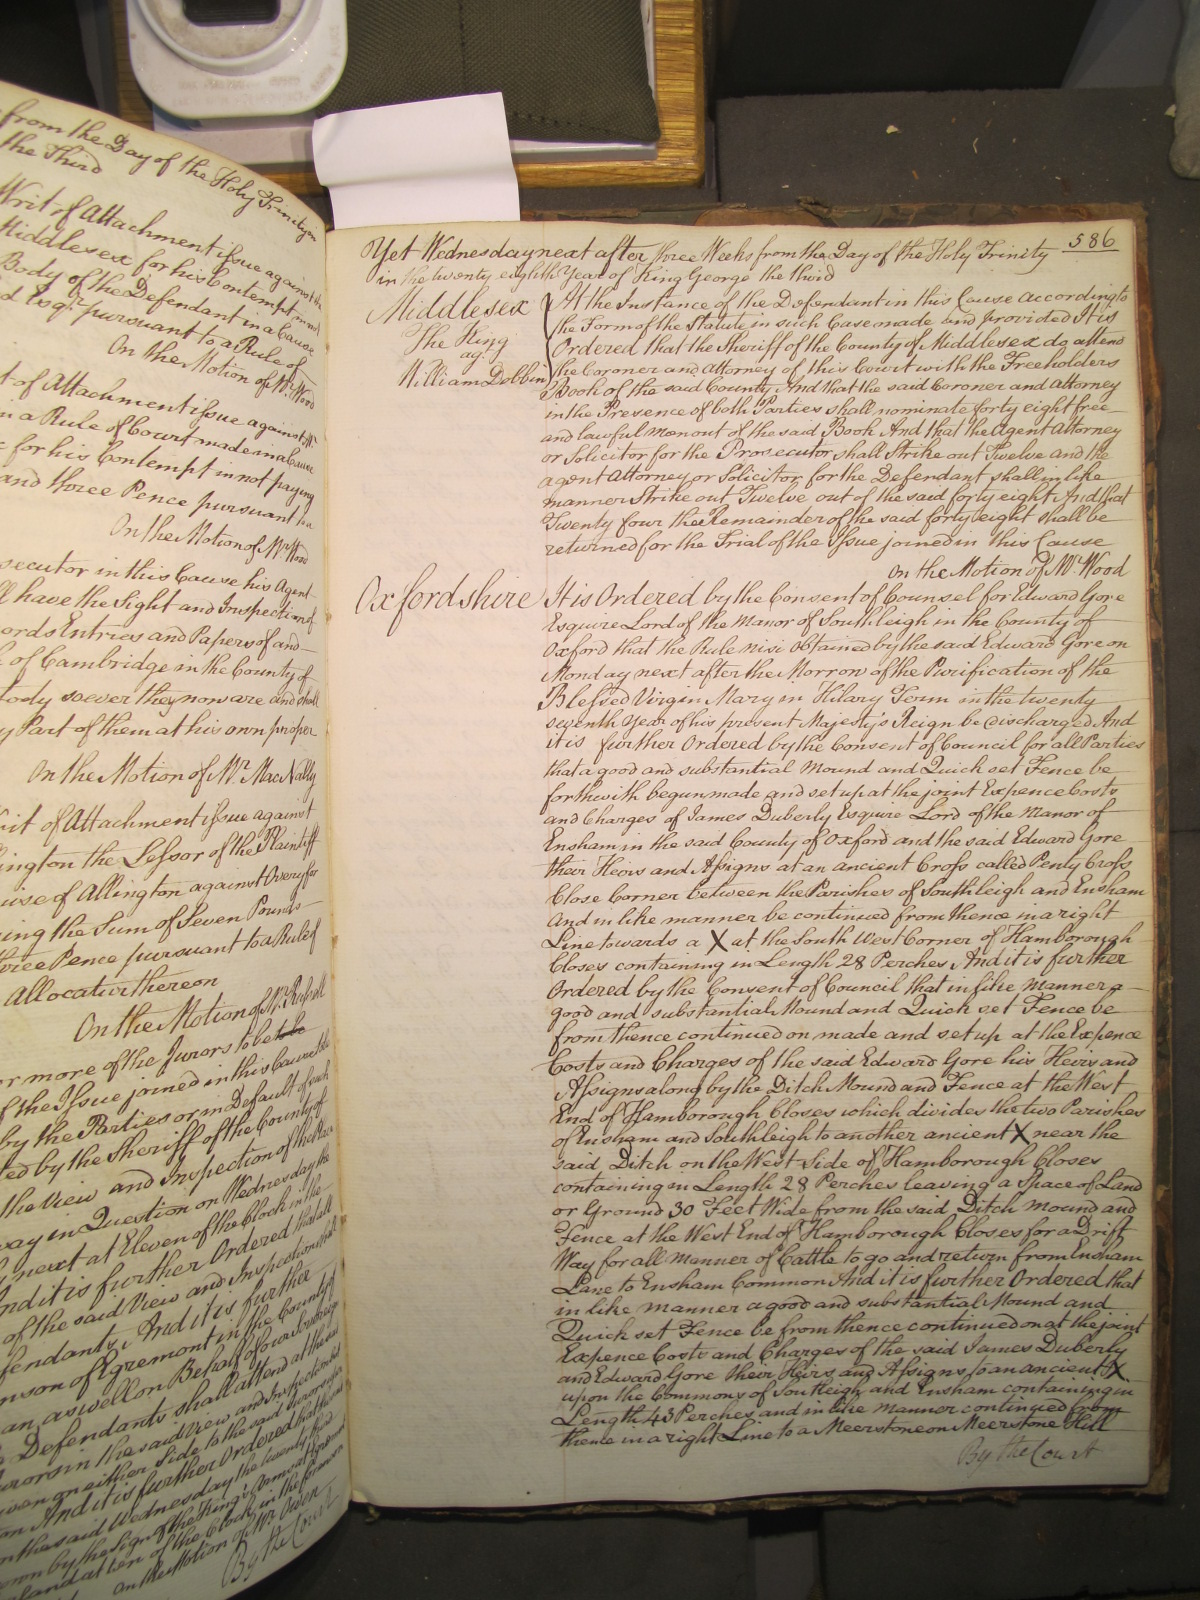 from the Day of the Holy Trinity in
the Third
Writ of Attachment issue against the
Middlesex for his Contempt
Body of the Defendant in a Cause
Esqr. pursuant to a Rule of
On the Motion of Mr. Wood
t of Attachment issue against Mr.
in a Rule of Court made in a Cause
for his Contempt in not paying
and three Pence pursuant to a
On the Motion of Mr. Wood
secutor in this Cause his Agent
ll have the Sight and Inspection of
ords Entries and Papers of and
of Cambridge in the County of
tody soever they now are and shall
y Part of them at his own proper
On the Motion of Mr. MacNally
rit of Attachment issue against
ington the Lessor of the Plaintiff
uise of Allington against Overy for
ing the Sum of Seven Pounds
three Pence pursuant to a Rule of
Allocatur thereon
On the Motion of Mr.
or more of the Jurors to be
f the Issue joined in this Cause
by the Parties or in Default of such
ted by the Sheriff of the County of
the View and Inspection of the
way in Question on Wednesday the
next at Eleven of the Clock in the
And it is further Ordered that
of the said View and Inspection
fendants And it is further
son of Egremont in the County of
an as well on Behalf of our
Defendants shall attend at the said
urors in the said View and Inspection
on either Side to the said
on And it is further Ordered that the
the said Wednesday the twenty third
own by the Sign of the King's Arms at Egremont
and at ten of the Clock in the forenoon
On the Motion of Mr.
By the Court
586
Yet Wednesday next after three Weeks from the Day of the Holy Trinity
in the twenty eighth Year of King George the third
Middlesex
The King
agt.
William Dobbin
At the Instance of the Defendant in this Cause according to
the Form of the Statute in such Case made and provided It is
Ordered that the Sheriff of the County of Middlesex do attend
the Coroner and Attorney of this Court with the Freeholders
Book of the said County And that the said Coroner and Attorney
in the Presence of both Parties shall nominate forty eight free
and lawful men out of the said Book And that the Agent Attorney
or Solicitor for the Prosecutor shall Strike out Twelve and the
agent Attorney or Solicitor for the Defendant shall in like
manner Strike out Twelve out of the said forty eight And that
Twenty four the Remainder of the said forty eight shall be
returned for the Trial of the Issue joined in this Cause
On the Motion of Mr. Wood
Oxfordshire
It is Ordered by the Consent of Counsel for Edward Gore
Esquire Lord of the Manor of Southleigh in the County of
Oxford that the Rule nisi obtained by the said Edward Gore on
Monday next after the Morrow of the Purification of the
Blessed Virgin Mary in Hilary Term in the twenty
seventh Year of his present Majesty's Reign be discharged And
it is further Ordered by the Consent of Council for all Parties
that a good and substantial Mound and Quick set Fence be
forthwith begun made and set up at the joint Expence Costs
and Charges of James Duberly Esquire Lord of the Manor of
Ensham in the said County of Oxford and the said Edward Gore
their Heirs and Assigns at an ancient Cross called Penty Cross
Close Corner between the Parishes of Southleigh and Ensham
And in like manner be continued from thence in a right
Line towards a X at the South West Corner of Hamborough
Closes containing in Length 28 Perches And it is further
Ordered by the Consent of Council that in like manner a
good and substantial Mound and Quick set Fence be
from thence continued on made and set up at the Expence
Costs and Charges of the said Edward Gore his Heirs and
Assigns along by the Ditch Mound and Fence at the West
End of Hamborough Closes which divides the two Parishes
of Ensham and Southleigh to another ancient X near the
said Ditch on the West Side of Hamborough Closes
containing in Length 28 Perches leaving a Space of Land
or Ground 30 Feet Wide from the said Ditch Mound and
Fence at the West End of Hamborough Closes for a Drift
Way for all manner of Cattle to go and return from Ensham
Lane to Ensham Common And it is further Ordered that
in like manner a good and substantial Mound and
Quick set Fence be from thence continued on at the joint
Expence Costs and Charges of the said James Duberly
and Edward Gore their Heirs and Assigns to an ancient X
upon the Commons of Southleigh and Ensham containing in
Length 43 Perches and in like manner continued from
thence in a right Line to a Meerstone on Meerstone Hill
By the Court